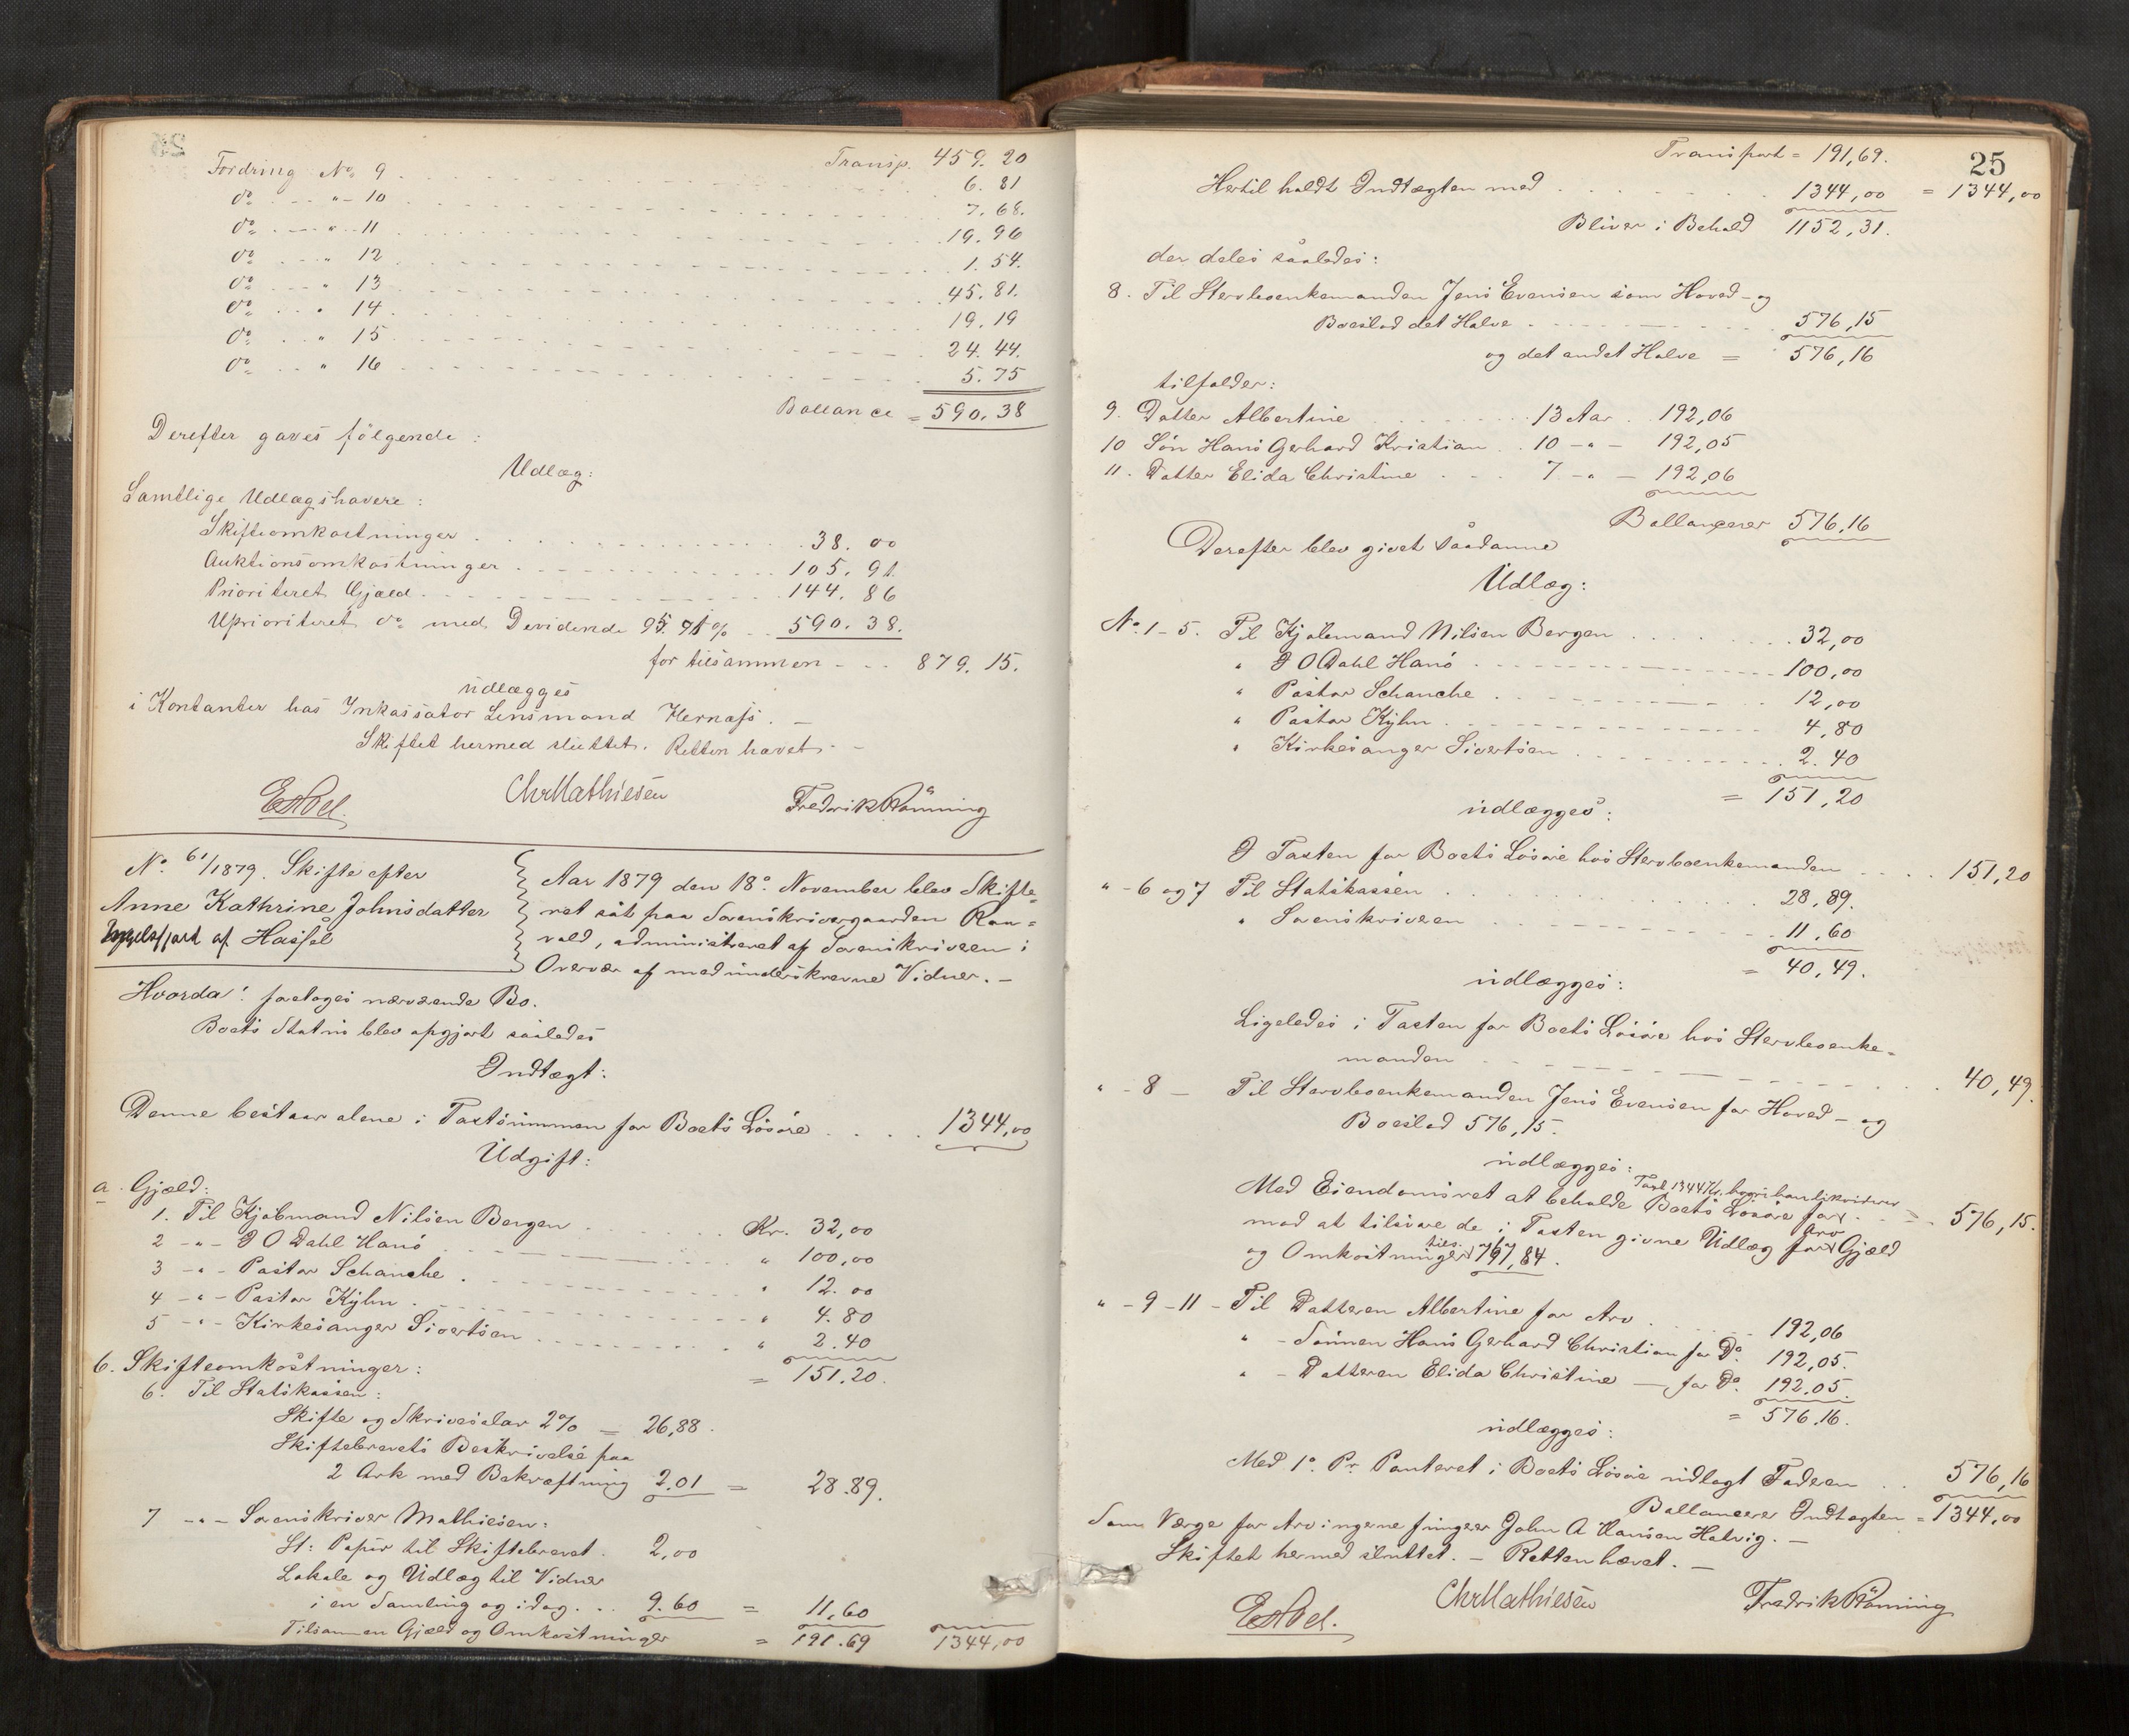 Transp. 459. 20
Fordring No 9 . . . 6. 81
do " - 10 . . . 7. 68.
do " 11 . . . 19. 96
do " 12 . . . 1. 54.
do " 13 . . . 45. 81.
do " 14 . . . 19. 19
do " 15 . . . 24. 44.
do " 16 . . . 5. 75
Ballance = 590. 38
Derefter gaves følgende:
Udlæg:
Samtlige Udlægshavere:
Skifteomkostninger . . . 38. 00
Auktionsomkostninger . . . 105. 91.
Prioriteret Gjæld . . . 144. 86
Uprioriteret do med Devidende 95. 71 % . . 590. 38.
for tilsammen . . . 879. 15.
udlægges
i Kontanter hos Inkassator Lensmand Hernæs. –
Skiftet hermed sluttet. Retten hævet. –
ChrMathiesen
Fredrik Rønning
No 61/1879. Skifte efter
Anne Kathrine Johnsdatter
af Hasfel
Aar 1879 den 18de November blev Skifte-
ret sat paa Sorenskrivergaarden Ram-
vald, administreret af Sorenskriveren i
Overvær af medunderskrevne Vidner. –
Hvorda: foretoges nærværende Bo.
Boets Status blev opgjort saaledes
Indtægt:
Denne bestaar alene i Taxtsummen for Boets Løsøre . . . 1344,00
Udgift:
a. Gjæld:
1. Til Kjøbmand Nilsen Bergen . . . Kr. 32,00
2 - " - I O Dahl Hanø . . . " 100,00
3 - " - Pastor Schanche . . . " 12. 00
4 - " - Pastor Kyhn . . . " 4. 80
5 - " - Kirkesanger Sivertsen . . . " 2. 40
= 151. 20.
b. Skifteomkostninger:
6. Til Statskassen:
Skifte og Skriversalær 2% = 26,88.
Skiftebrevets Beskrivelse paa
2 Ark med Bekræftning 2.01 = 28.89.
7 - " - Sorenskriver Mathiesen:
St: Papir til Skiftebrevet . 2,00
Lokale og Udlæg til Vidner
i en Samling og idag . . 9.60 = 11,60
Tilsammen Gjæld og Omkostninger = 191.69 1344,00
25
Transport = 191,69.
Hertil holdt Indtægten med . . . 1344,00 = 1344,00
Bliver i Behold 1152,31.
der deles saaledes:
8. Til Stervboenkemanden Jens Evensen som Hoved- og
Boeslod det Halve . . . 576,15
og det andet Halve = 576,16
tilfalder:
9. Datter Albertine . . . 13 Aar . 192,06
10 Søn Hans Gerhard Kristian . . 10 - " - 192,05
11. Datter Elida Christine . . . 7 - " - 192,06
Ballancerer 576,16
Derefter blev givet saadanne
Udlæg:
No 1 - 5. Til Kjøbmand Nilsen Bergen . . . 32,00
" I O Dahl Hanø . . . 100,00
" Pastor Schanche . . . 12,00
" Pastor Kyhn . . . 4,80
" Kirkesanger Sivertsen . . . 2.40
= 151,20
udlægges:
I Taxten for Boets Løsøre hos Stervboenkemanden . . . 151,20
" - 6 og 7 Til Statskassen . . . 28,89.
" Sorenskriveren . . . 11,60
= 40,49.
udlægges:
Ligeledes i Taxten for Boets Løsøre hos Stervboenke-
manden . . . 40,49.
" - 8 - Til Stervboenkemanden Jens Evensen for Hoved- og
Boeslod 576,15.
udlægges:
Taxt 1344 Kr. hvori han likviderer
Med Eiendomsret at beholde Boets Løsøre for . . . 576,15.
mod at tilsvare de i Taxten givne Udlæg for Arv Gjæld
og Omkostninger tils. 767,84.
" - 9 - 11 - Til Datteren Albertine for Arv . . . 192,06
" - Sønnen Hans Gerhard Christian for Do 192,05.
" - Datteren Elida Christine - for Do. 192,05.
= 576.16.
udlægges:
Med 1ste Pr. Panteret i Boets Løsøre udlagt Faderen . . 576,16
Ballancerer Indtægten = 1344,00
Som Værge for Arvingerne fungerer John A Hansen Helvig. –
Skiftet hermed sluttet. – Retten hævet. –
ChrMathiesen
Fredrik Rønning